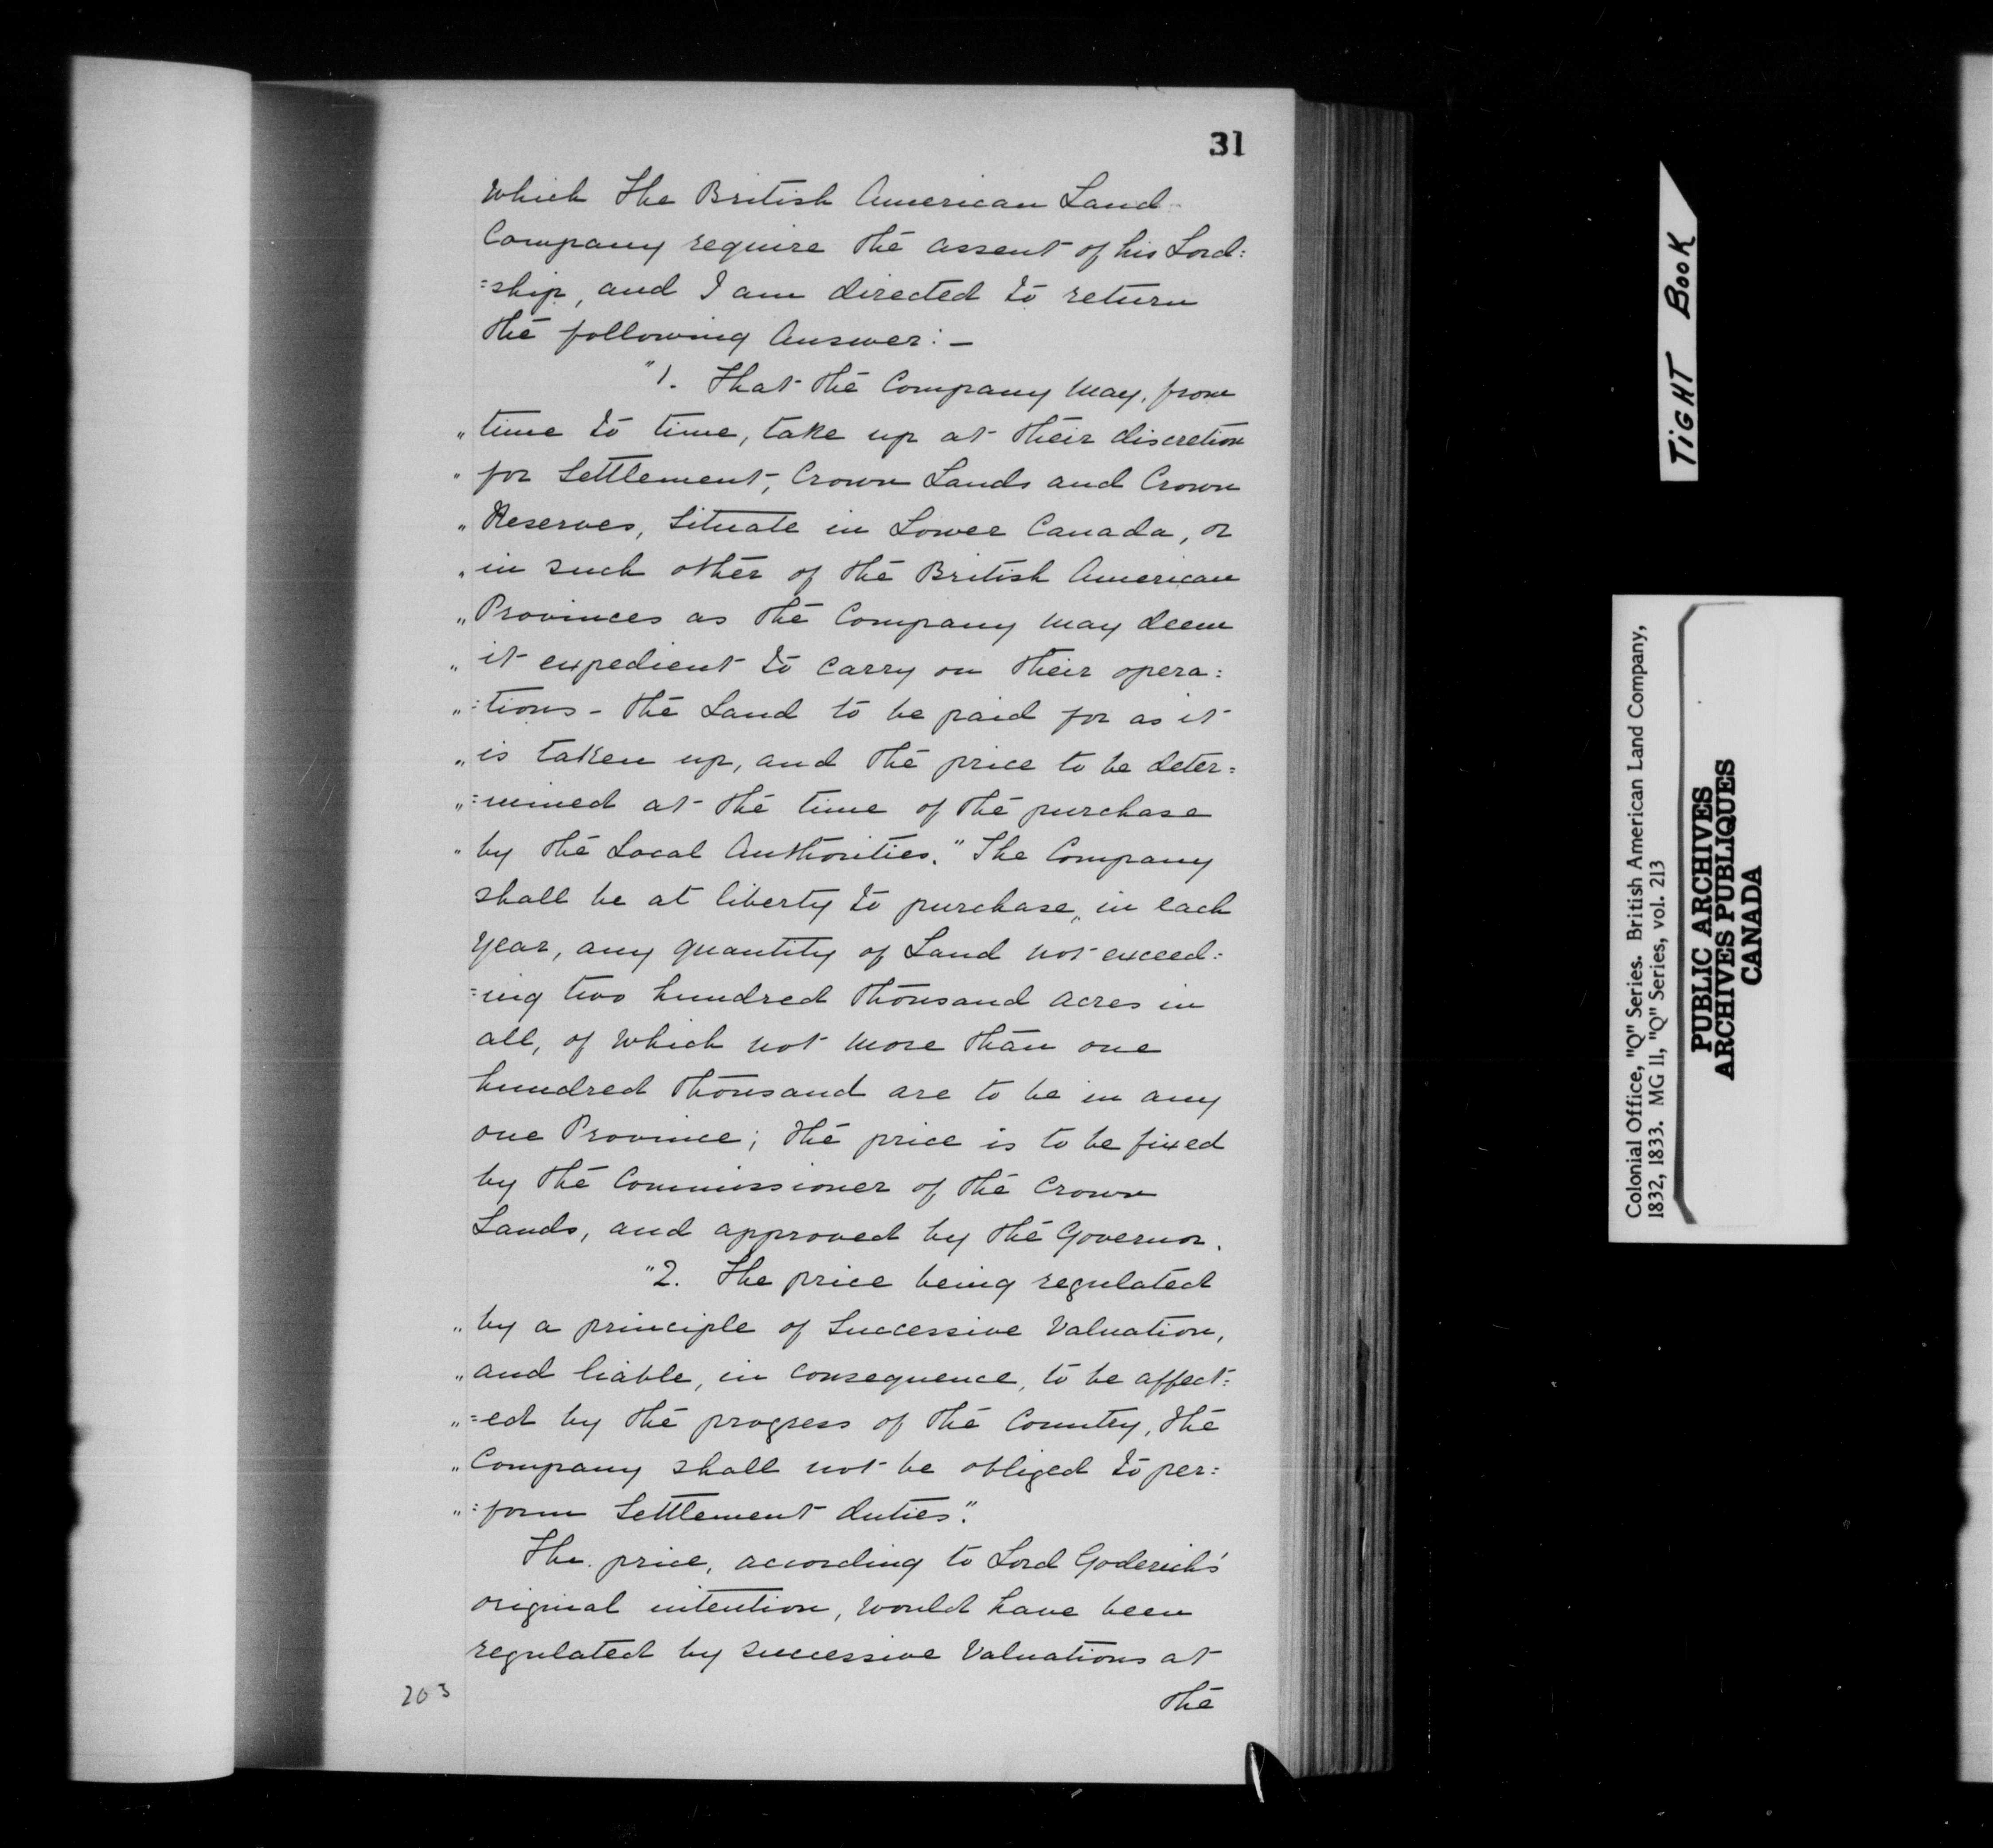 31
which the British American Land
Company require the assent of his Lord:
=ship, and I am directed to return
the following Answer: —
"1. That the Company may, from
" time to time, take up at their discretion
" for Settlement, Crown Lands and Crown
" Reserves, Situate in Lower Canada, or
" in such other of the British American
" Provinces as the Company may deem
" it expedient to carry on their opera:
" =tions – the Land to be paid for as it
" is taken up, and the price to be deter=
" =mined at the time of the purchase
" by the Local Authorities." The Company
shall be at liberty to purchase, in each
year, any quantity of Land not exceed:
=ing two hundred thousand acres in
all, of which not more than one
hundred thousand are to be in any
one Province; the price is to be fixed
by the Commissioner of the Crown
Lands, and approved by the Governor.
"2. The price being regulated
" by a principle of Successive Valuation,
" and liable, in consequence, to be affect=
" =ed by the progress of the Country, the
" Company shall not be obliged to per:
" =form Settlement duties."
The price, according to Lord Goderich's
original intention, would have been
regulated by successive Valuations at
the
203
TIGHT BOOK
Colonial Office, "Q" Series. British American Land Company,
1832, 1833. MG 11, "Q" Series, vol. 213
PUBLIC ARCHIVES
ARCHIVES PUBLIQUES
CANADA